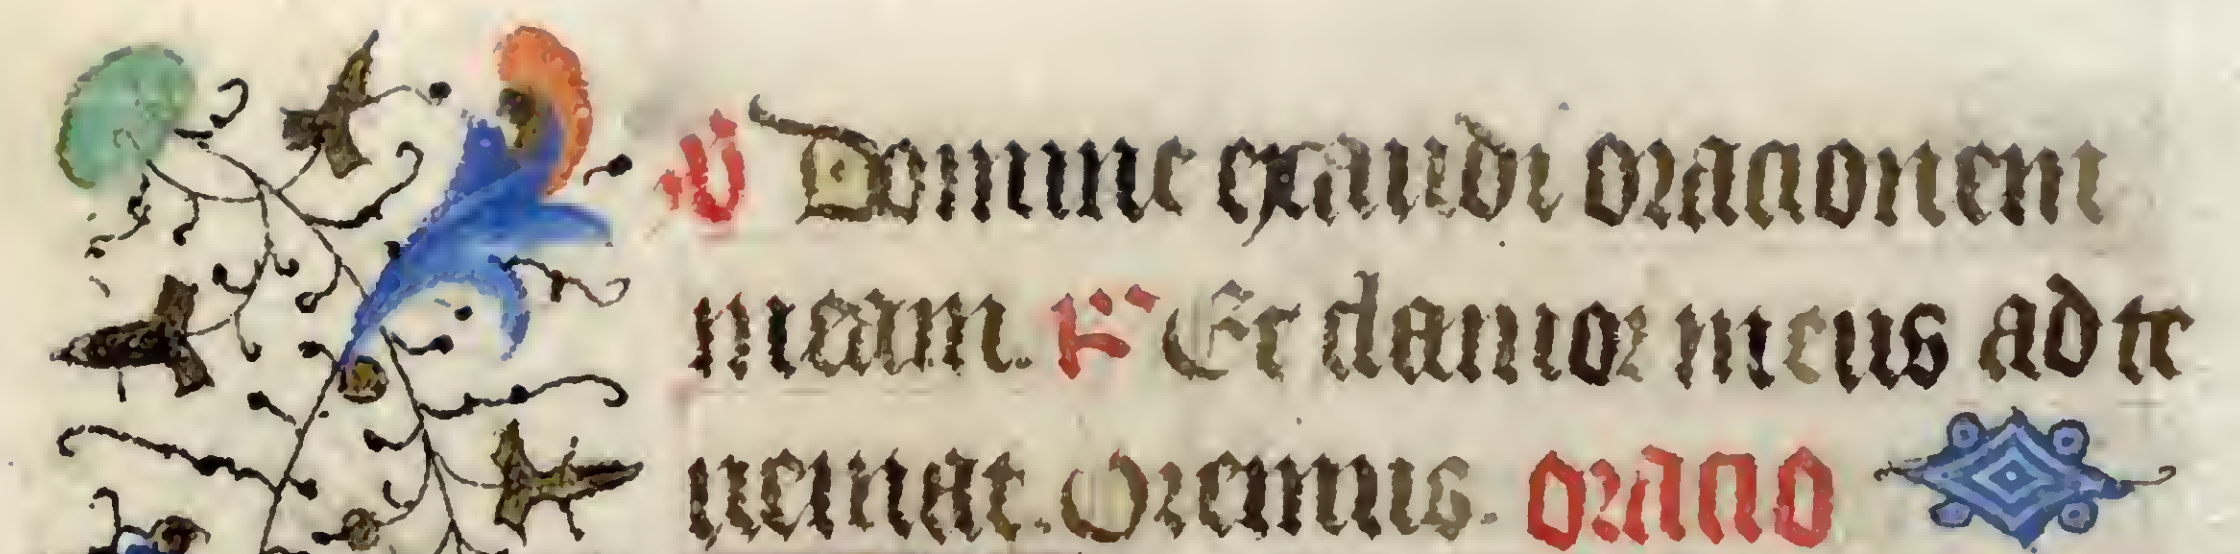 V Domine exaudi orationem
meam. R Et clamor meus ad te
veniat. Oremus. oratio